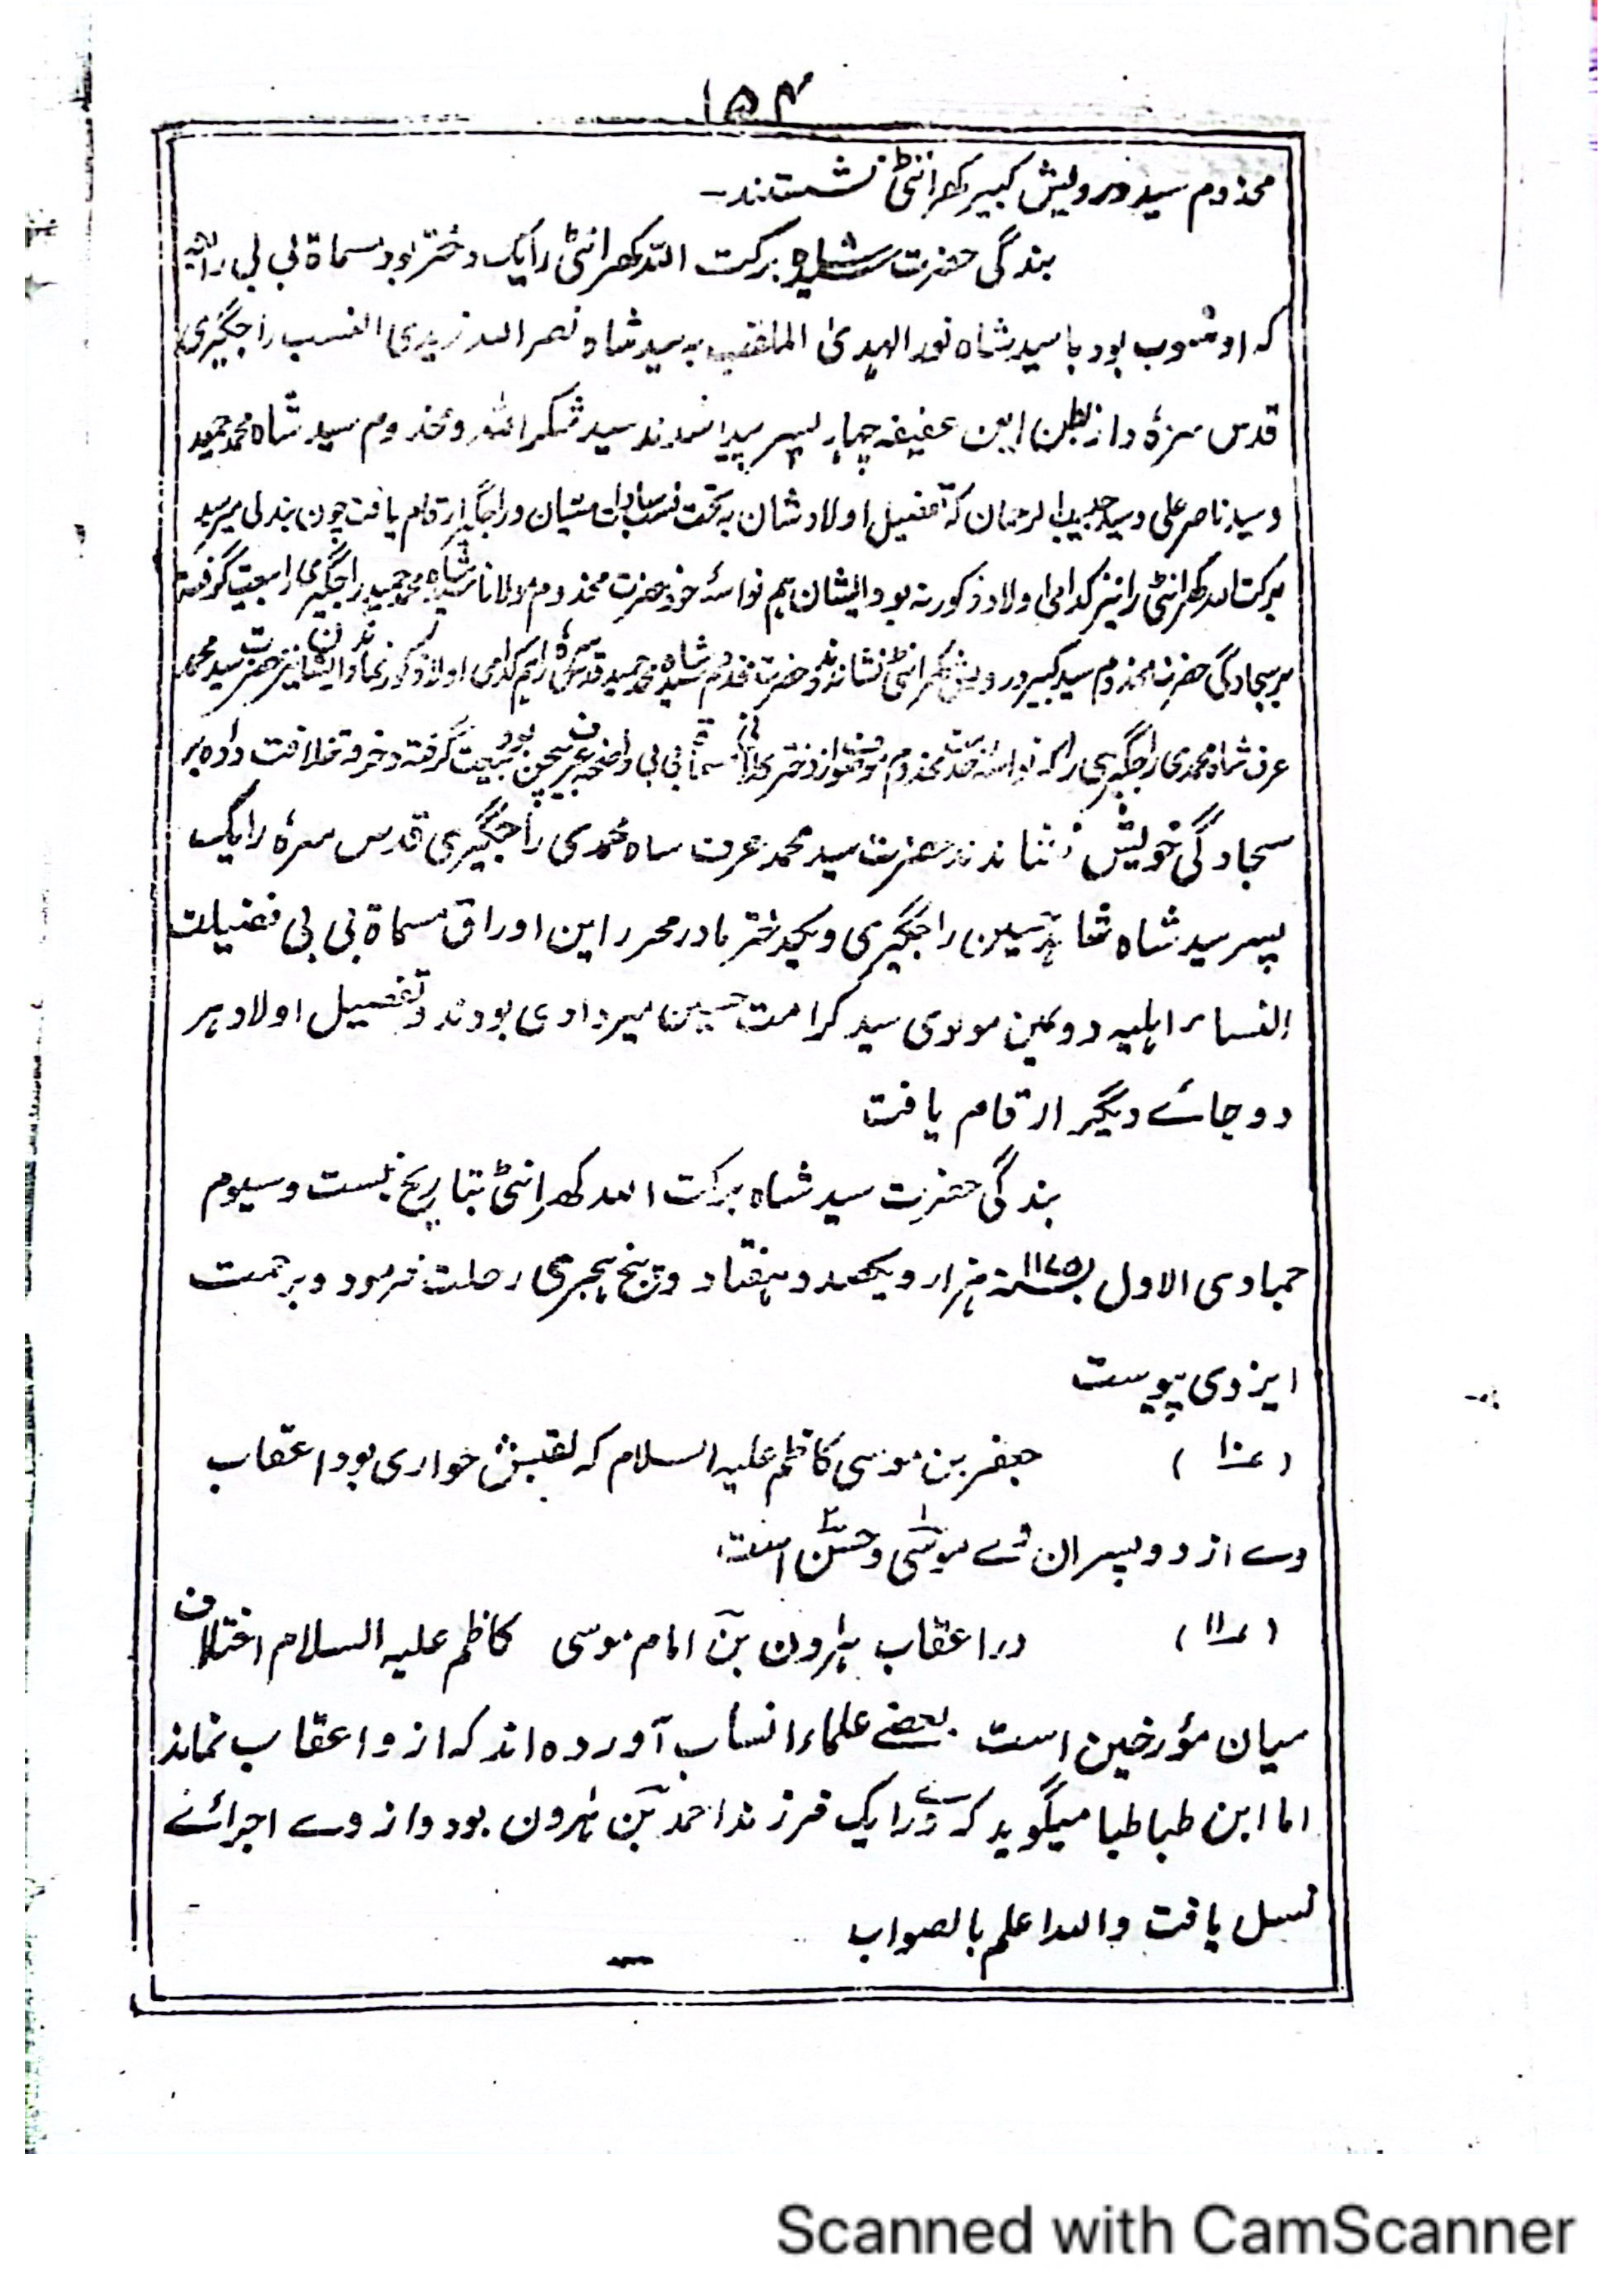 ۱۵۴
مخدوم سید درویش کبیر کھرانٹی نشستند۔
بندگی حضرت شاہ برکت اللہ کھرانٹی را یک دختر بود مسماۃ بی بی
کہ او منسوب بود با سید شاہ نور الہدیٰ الملقب بہ سید شاہ نصر اللہ زیدی النسب راجگیری
قدس سرہٗ و از بطن این عفیفہ چہار پسر پیدا شدند سید شکر اللہ و مخدوم سید شاہ محمد حمید
و سید ناصر علی و سید حبیب الرحمان کہ تفصیل اولاد شان بہ تحت نسب سادات ارقام یافت چون بندگی میر سید
برکت اللہ کھرانٹی را نیز کدامی اولاد ذکور نہ بود ایشان ہم نواسۂ خود حضرت مخدوم مولانا سید شاہ محمد حمید راجگیری را بیعت گرفتہ
بر سجادگی حضرت مخدوم سید کبیر درویش کھرانٹی نشاندند و حضرت مخدوم سید شاہ محمد حمید قدس سرہٗ را ہم کدامی اولاد ذکور نماند و ایشان نیز حضرت سید محمد
عرف شاہ محمدی راجگیری را کہ نواسۂ حضرت مخدوم از دختر مسماۃ بی بی واضحہ عرف بود بیعت گرفتہ و خرقہ خلافت دادہ بر
سجادگی خویش نشاندند حضرت سید محمد عرف شاہ محمدی راجگیری قدس سرہٗ را یک
پسر سید شاہ حسین راجگیری و یک دختر مادر محرر این اوراق مسماۃ بی بی فضیلت
النساء اہلیہ دومین مولوی سید کرامت حسین میردادی بودند و تفصیل اولاد ہر
دو جائے دیگر ارقام یافت
بندگی حضرت سید شاہ برکت اللہ کھرانٹی بتاریخ بست و سیوم
جمادی الاول بسنہ ۱۱۷۵ ہزار و یکصد و ہفتاد و پنج ہجری رحلت فرمود و برحمت
ایزدی پیوست
(۱۰) جعفر بن موسی کاظم علیہ السلام کہ لقبش خواری بود اعقاب
وے از دو پسران وے موسیٰ و حسن است
(۱۱) در اعقاب ہارون بن امام موسی کاظم علیہ السلام اختلاف
میان مؤرخین است بعضے علماء انساب آوردہ اند کہ ازو اعقاب نماند
اما ابن طباطبا میگوید کہ وے را یک فرزند احمد بن ہارون بود و از وے اجرائے
نسل یافت واللہ اعلم بالصواب
Scanned with CamScanner